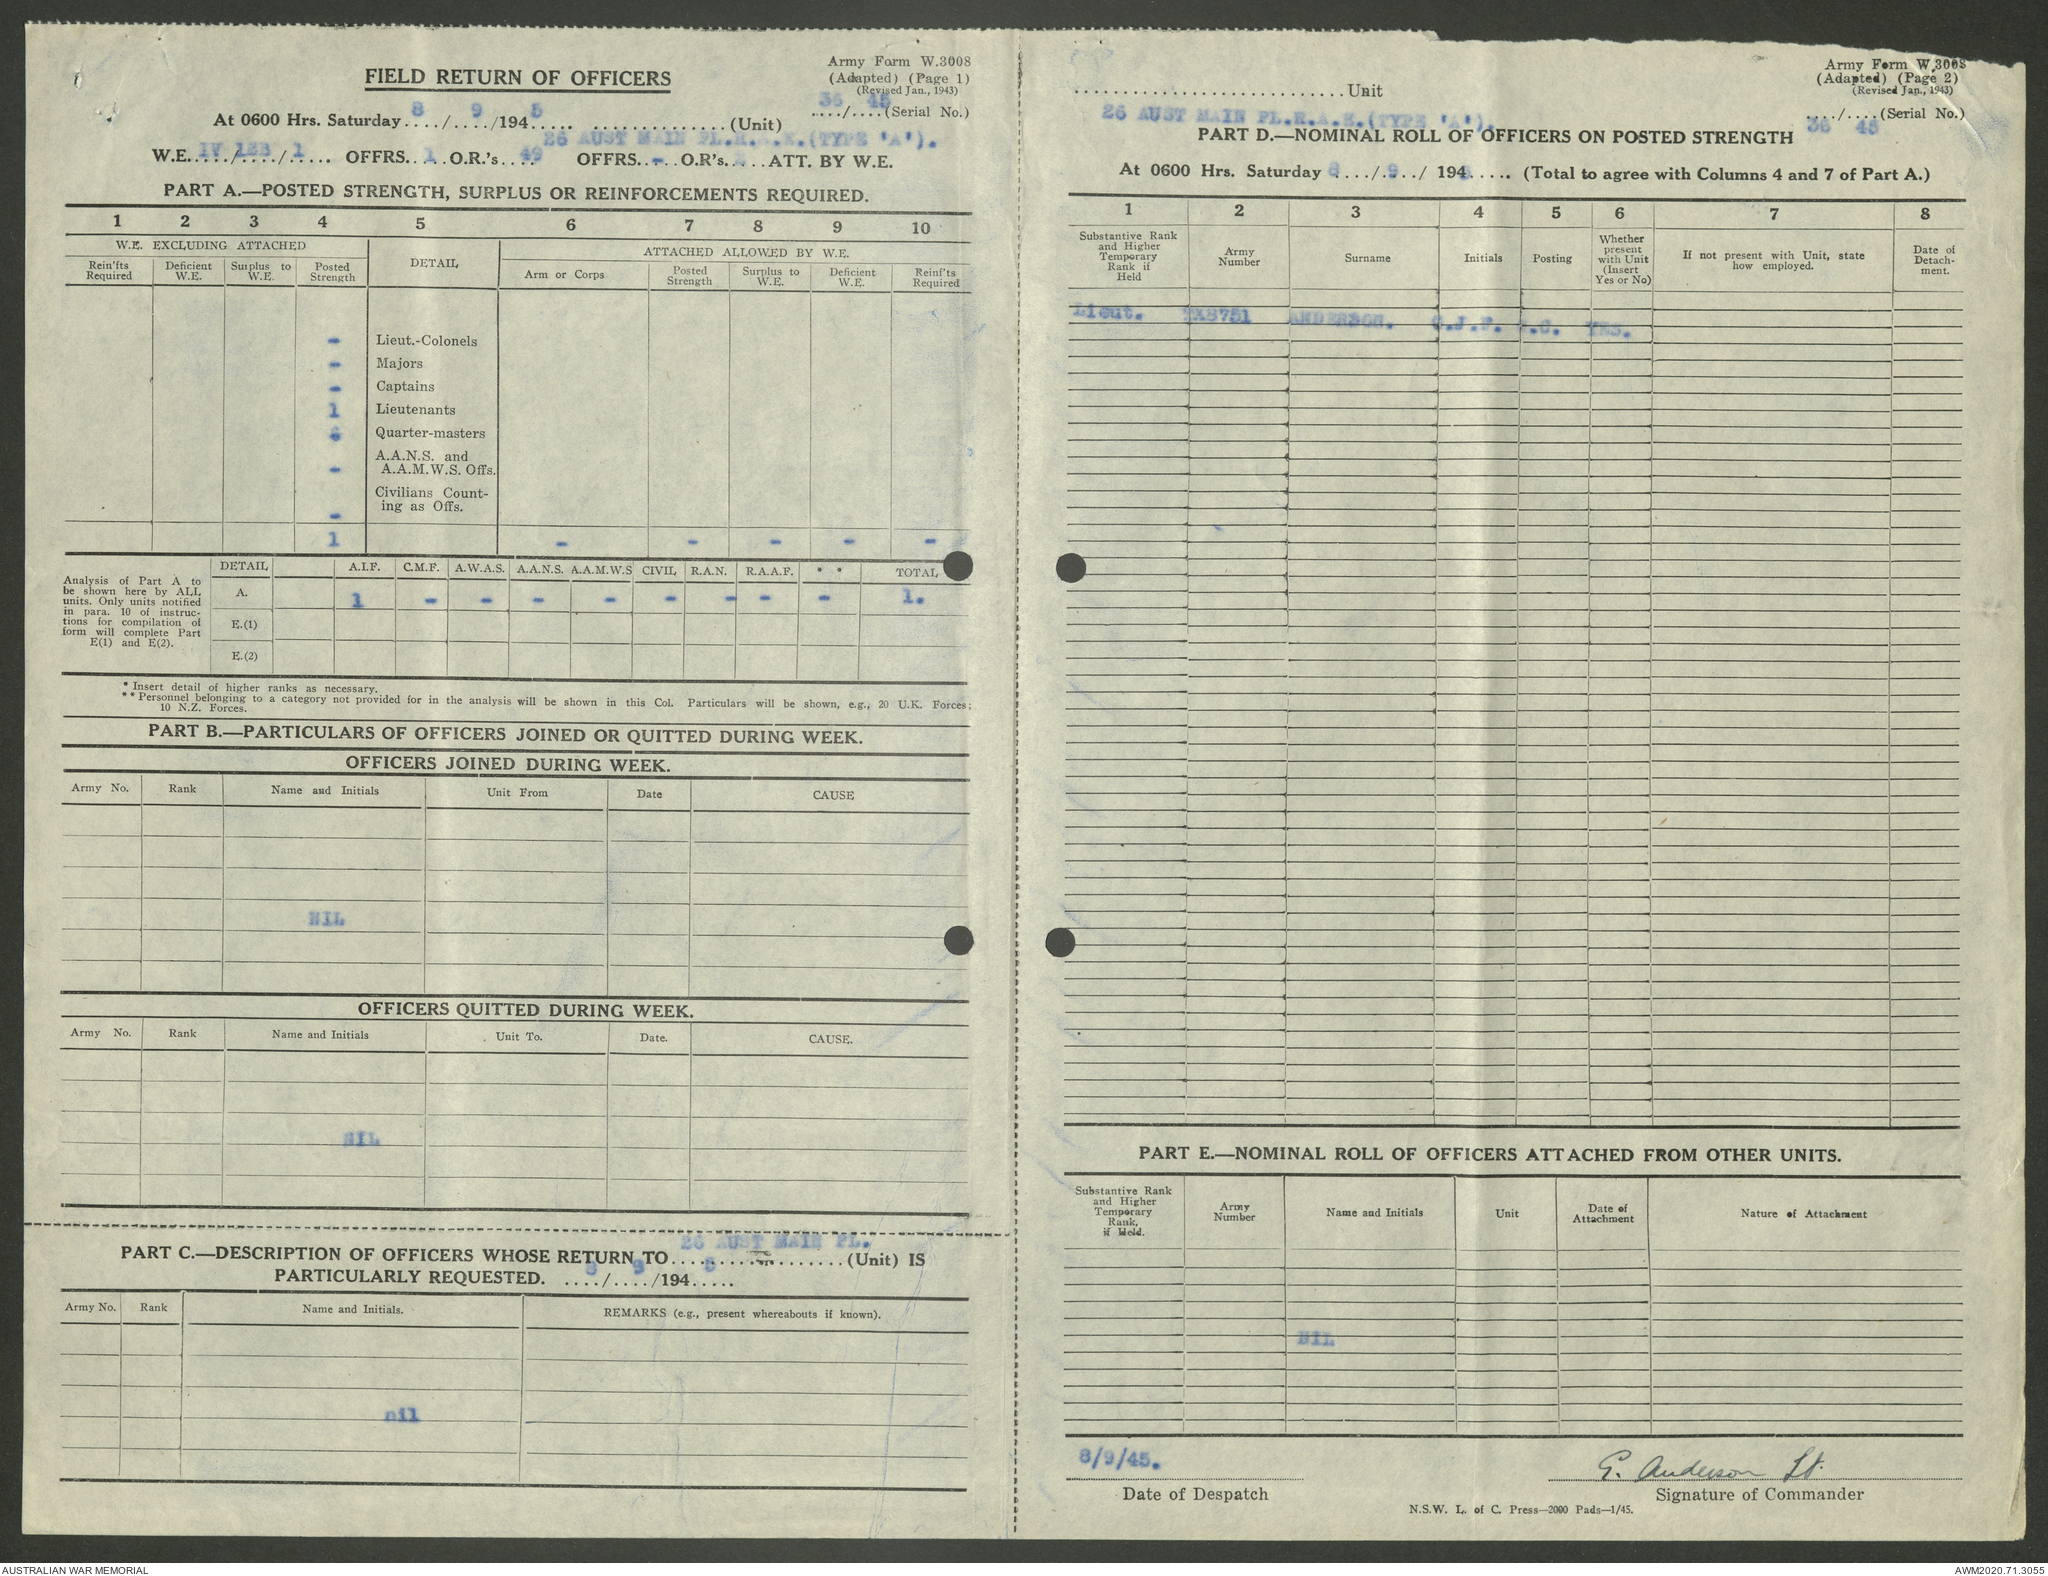 Army Form W.3008
(Adapted) (Page 1)
(Revised Jan., 1943)
FIELD RETURN OF OFFICERS
36 45
..../....(Serial No.)
At 0600 Hrs. Saturday 8/ 9/194 5 .............(Unit)
26 AUST MAIN PL.R.A.E.(TYPE 'A').
W.E. IV/12B/1 OFFRS. 1 O.R.'s 49 OFFRS. - O.R's. - ATT. BY W.E.
PART A.—POSTED STRENGTH, SURPLUS OR REINFORCEMENTS REQUIRED.
1 2 3 4 5 6 7 8 9 10
W.E. EXCLUDING ATTACHED DETAIL ATTACHED ALLOWED BY W.E.
Rein'fts Required Deficient W.E. Surplus to W.E. Posted Strength Arm or Corps Posted Strength Surplus to W.E. Deficient W.E. Reinf'ts Required
- Lieut.-Colonels
- Majors
- Captains
1 Lieutenants
Quarter-masters
A.A.N.S. and
- A.A.M.W.S. Offs.
Civilians Count-
ing as Offs.
-
1 - - - - -
Analysis of Part A to
be shown here by ALL
units. Only units notified
in para. 10 of instruc-
tions for compilation of
form will complete Part
E(1) and E(2).
DETAIL A.I.F. C.M.F. A.W.A.S. A.A.N.S. A.A.M.W.S CIVIL R.A.N. R.A.A.F. * * TOTAL
A. 1 - - - - - - - - 1.
E.(1)
E.(2)
* Insert detail of higher ranks as necessary.
** Personnel belonging to a category not provided for in the analysis will be shown in this Col. Particulars will be shown, e.g., 20 U.K. Forces;
10 N.Z. Forces.
PART B.—PARTICULARS OF OFFICERS JOINED OR QUITTED DURING WEEK.
OFFICERS JOINED DURING WEEK.
Army No. Rank Name and Initials Unit From Date CAUSE
NIL
OFFICERS QUITTED DURING WEEK.
Army No. Rank Name and Initials Unit To. Date. CAUSE.
NIL
26 AUST MAIN PL.
PART C.—DESCRIPTION OF OFFICERS WHOSE RETURN TO..................(Unit) IS
PARTICULARLY REQUESTED. 8/ 9/194 5
Army No. Rank Name and Initials. REMARKS (e.g., present whereabouts if known).
nil
Army Form W.3008
(Adapted) (Page 2)
(Revised Jan., 1943)
............................Unit
26 AUST MAIN PL.R.A.E.(TYPE 'A').
..../....(Serial No.)
36 45
PART D.—NOMINAL ROLL OF OFFICERS ON POSTED STRENGTH
At 0600 Hrs. Saturday 8/ 9/ 194 5 (Total to agree with Columns 4 and 7 of Part A.)
1 2 3 4 5 6 7 8
Substantive Rank and Higher Temporary Rank if Held Army Number Surname Initials Posting Whether present with Unit (Insert Yes or No) If not present with Unit, state how employed. Date of Detach-ment.
Lieut. ANDERSON. YES.
PART E.—NOMINAL ROLL OF OFFICERS ATTACHED FROM OTHER UNITS.
Substantive Rank and Higher Temporary Rank, if Held. Army Number Name and Initials Unit Date of Attachment Nature of Attachment
NIL
8/9/45.
Date of Despatch
G. Anderson Lt.
Signature of Commander
N.S.W. L. of C. Press—2000 Pads—1/45.
AUSTRALIAN WAR MEMORIAL
AWM2020.71.3055